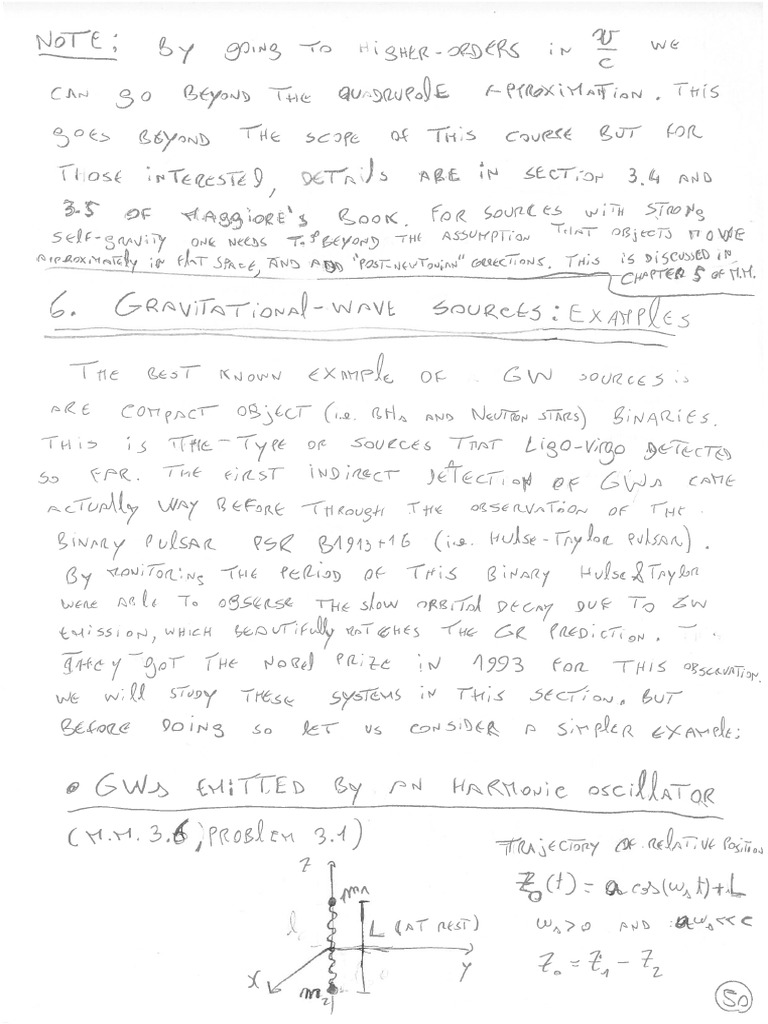 NOTE: BY GOING TO HIGHER-ORDERS IN v/c WE
CAN GO BEYOND THE QUADRUPOLE APPROXIMATION. THIS
GOES BEYOND THE SCOPE OF THIS COURSE BUT FOR
THOSE INTERESTED, DETAILS ARE IN SECTION 3.4 AND
3.5 OF MAGGIORE'S BOOK. FOR SOURCES WITH STRONG
SELF-GRAVITY ONE NEEDS TO BEYOND THE ASSUMPTION THAT OBJECTS MOVE
APPROXIMATELY IN FLAT SPACE, AND ADD "POST-NEWTONIAN" CORRECTIONS. THIS IS DISCUSSED IN
CHAPTER 5 OF M.M.
6. GRAVITATIONAL-WAVE SOURCES: EXAMPLES
THE BEST KNOWN EXAMPLE OF GW SOURCES
ARE COMPACT OBJECT (i.e. BHs AND NEUTRON STARS) BINARIES.
THIS IS THE TYPE OF SOURCES THAT LIGO-VIRGO DETECTED
SO FAR. THE FIRST INDIRECT DETECTION OF GWs CAME
ACTUALLY WAY BEFORE THROUGH THE OBSERVATION OF THE
BINARY PULSAR PSR B1913+16 (i.e. HULSE-TAYLOR PULSAR).
BY MONITORING THE PERIOD OF THIS BINARY HULSE & TAYLOR
WERE ABLE TO OBSERSE THE SLOW ORBITAL DECAY DUE TO GW
EMISSION, WHICH BEAUTIFULLY MATCHES THE GR PREDICTION.
THEY GOT THE NOBEL PRIZE IN 1993 FOR THIS OBSERVATION.
WE WILL STUDY THESE SYSTEMS IN THIS SECTION. BUT
BEFORE DOING SO LET US CONSIDER A SIMPLER EXAMPLE:
• GWs EMITTED BY AN HARMONIC OSCILLATOR
(M.M. 3.6, PROBLEM 3.1)
TRAJECTORY OF RELATIVE POSITION
z₀(t) = a cos(ωₛt) + L
ωₛ > 0 AND aωₛ << c
z₀ = z₁ - z₂
z
m₁
L (AT REST)
x
y
m₂
50